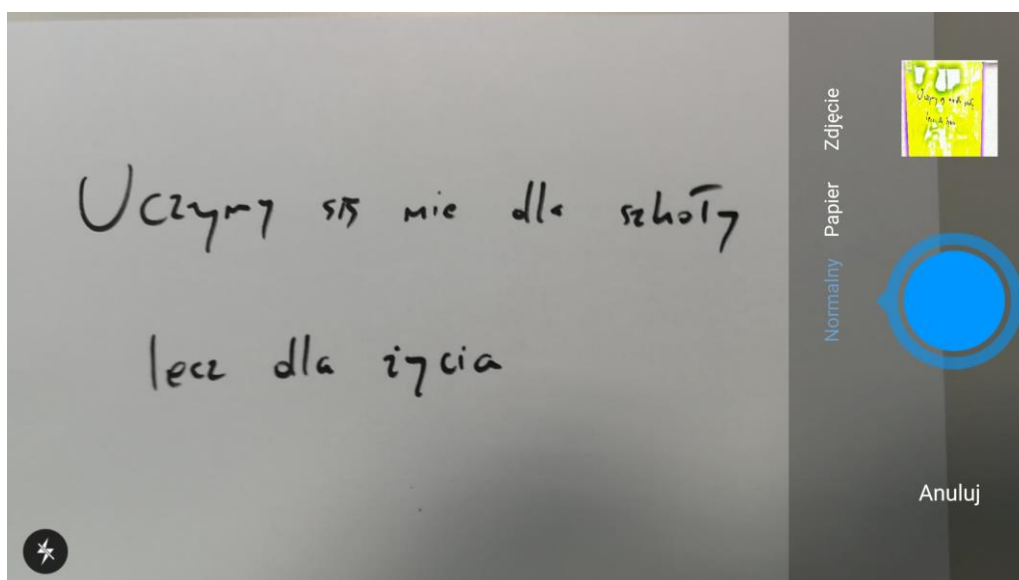 Uczymy się nie dla szkoły
lecz dla życia
Zdjęcie
Papier
Normalny
Anuluj